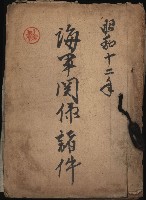 昭和十二年
海軍関係諸件